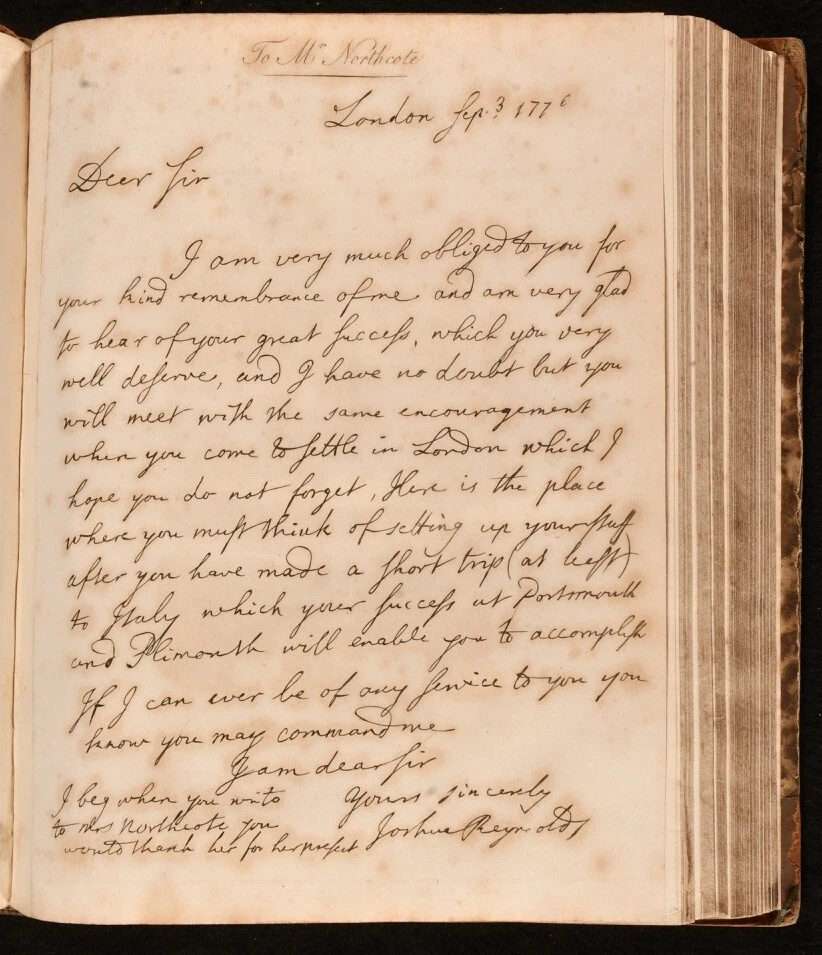 To Mr Northcote
London Sep. 3 1776
Dear Sir
I am very much obliged to you for
your kind remembrance of me and am very glad
to hear of your great success, which you very
well deserve, and I have no doubt but you
will meet with the same encouragement
when you come to settle in London which I
hope you do not forget, Here is the place
where you must think of setting up your staff
after you have made a short trip (at least)
to Italy which your success at Portsmouth
and Plimouth will enable you to accomplish
If I can ever be of any service to you you
know you may command me
I am dear Sir
Yours sincerely
Joshua Reynolds
I beg when you write
to Mrs Northcote you
would thank her for her present